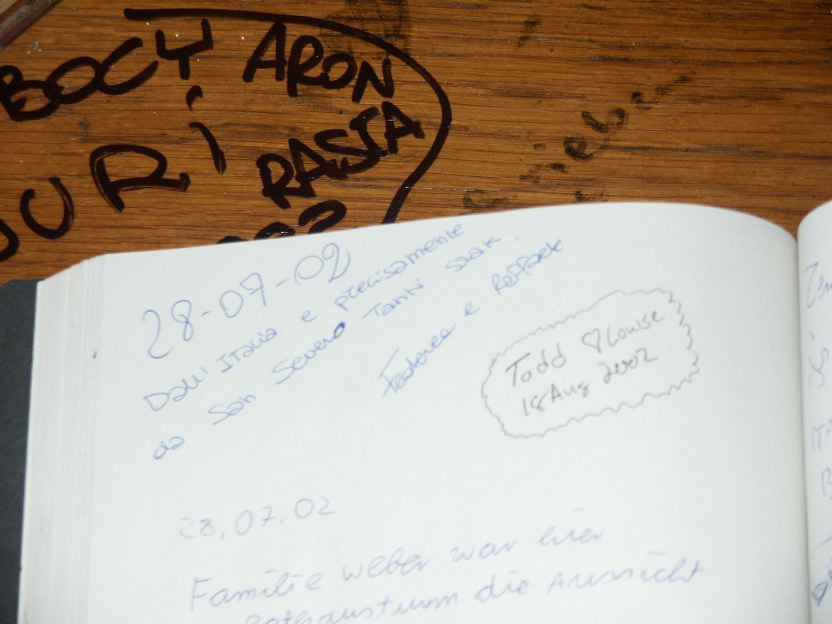 BOCY ARON
JURi RASTA
28-07-02
Dall'Italia e precisamente
da San Severo Tanti saluti
Federica e Raffaele
Todd & Louise
18 Aug 2002
28.07.02
Familie Weber war hier
Rathausturm die Aussicht